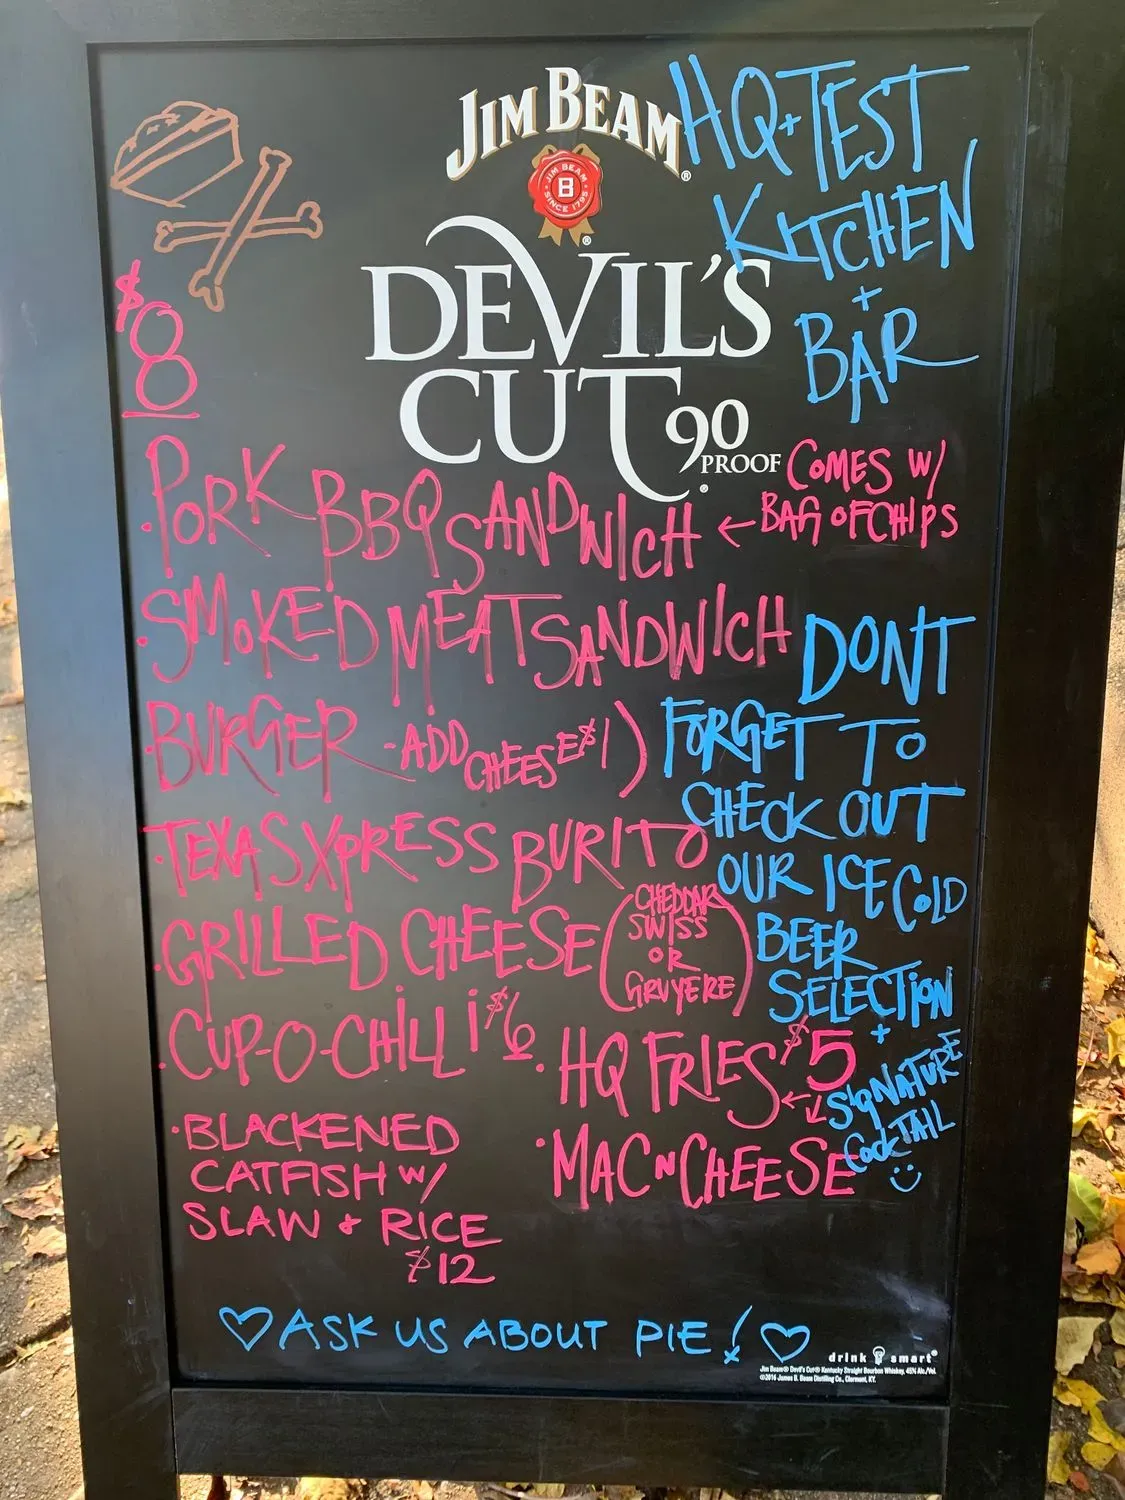 JIM BEAM®
JIM BEAM
B
SINCE 1795
®
DEVIL'S
CUT
90
PROOF
®
HQ+TEST
KITCHEN
+
BAR
$8
·PORK BBQ SANDWICH ← COMES W/
BAG OF CHIPS
·SMOKED MEAT SANDWICH
·BURGER -ADD CHEESE $1)
·TEXAS XPRESS BURITO
·GRILLED CHEESE (CHEDDAR
SWISS
OR
GRUYERE)
·CUP-O-CHILLI $6
·HQ FRIES $5
·MAC N CHEESE
·BLACKENED
CATFISH W/
SLAW + RICE
$12
DONT
FORGET TO
CHECK OUT
OUR ICE COLD
BEER
SELECTION
+
SIGNATURE
COCKTAIL
♡ ASK US ABOUT PIE! ♡
drink smart®
Jim Beam® Devil's Cut® Kentucky Straight Bourbon Whiskey, 45% Alc./Vol.
©2016 James B. Beam Distilling Co., Clermont, KY.